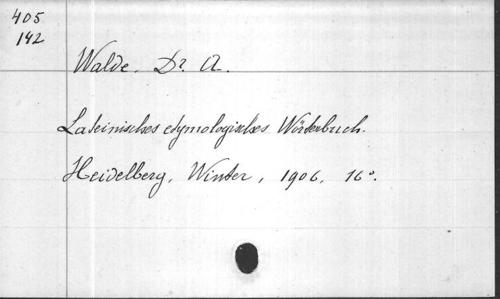 405
142
Walde, Dr. A.
Lateinisches etymologisches Wörterbuch.
Heidelberg, Winter, 1906. 16°.